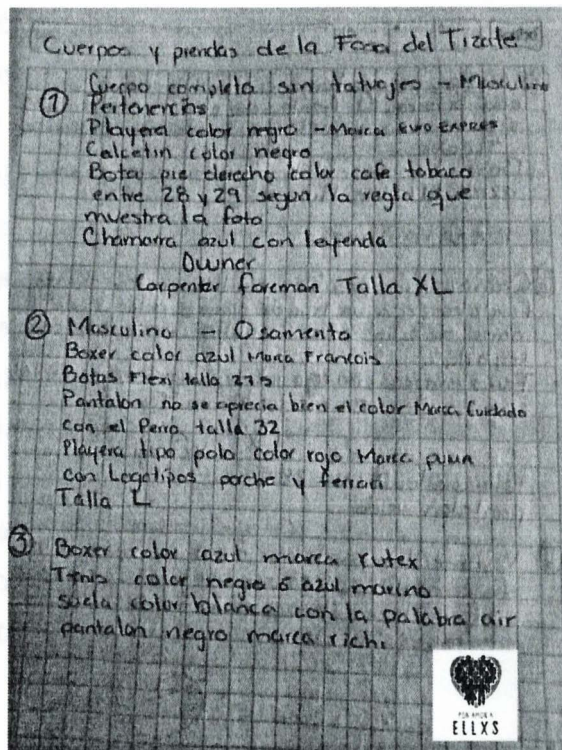 Cuerpos y prendas de la Fosa del Tizate
① Cuerpo completo sin tatuajes - Masculino
Pertenencias
Playera color negro - Marca EVO EXPRES
Calcetin color negro
Bota pie derecho color cafe tobaco
entre 28 y 29 segun la regla que
muestra la foto
Chamarra azul con leyenda
Owner
Carpenter foreman Talla XL
② Masculino - Osamenta
Boxer color azul Marca Francois
Botas Flexi talla 275
Pantalon no se aprecia bien el color Marca Cuidado
con el Perro talla 32
Playera tipo polo color rojo Marca puma
con Logotipos porche y ferrari
Talla L
③ Boxer color azul marca rutex
Tenis color negro ó azul marino
suela color blanca con la palabra air
pantalon negro marca richi
POR AMOR A
ELLXS